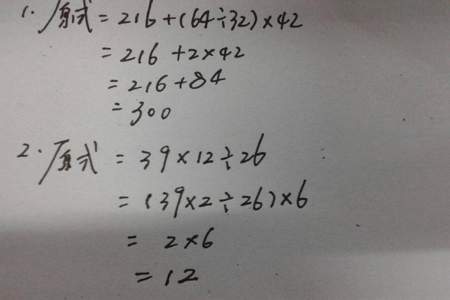 1. 原式 = 216 + (64÷32)×42
= 216 + 2×42
= 216 + 84
= 300
2. 原式 = 39×12÷26
= (39×2÷26)×6
= 2×6
= 12